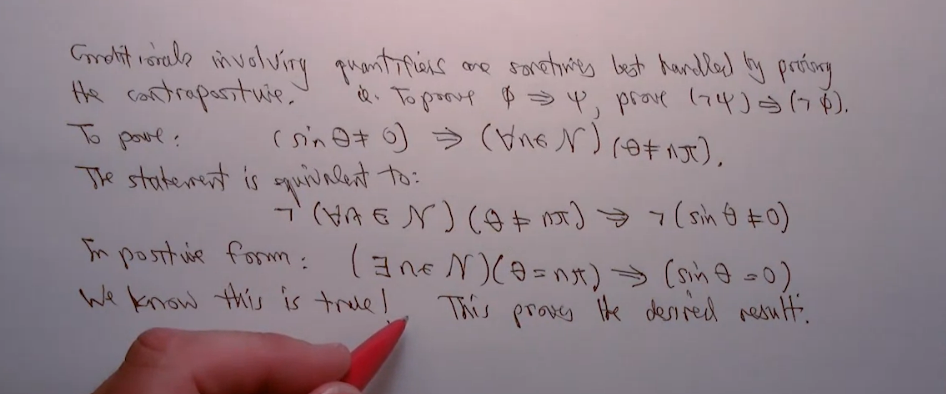 Conditionals involving quantifiers are sometimes best handled by proving
the contrapositive. ie. To prove ϕ ⇒ ψ, prove (¬ψ) ⇒ (¬ϕ).
To prove: (sin θ ≠ 0) ⇒ (∀n∈N)(θ ≠ nπ).
The statement is equivalent to:
¬(∀n ∈ N)(θ ≠ nπ) ⇒ ¬(sin θ ≠ 0)
In positive form: (∃n∈N)(θ = nπ) ⇒ (sin θ = 0)
We know this is true! This proves the desired result.